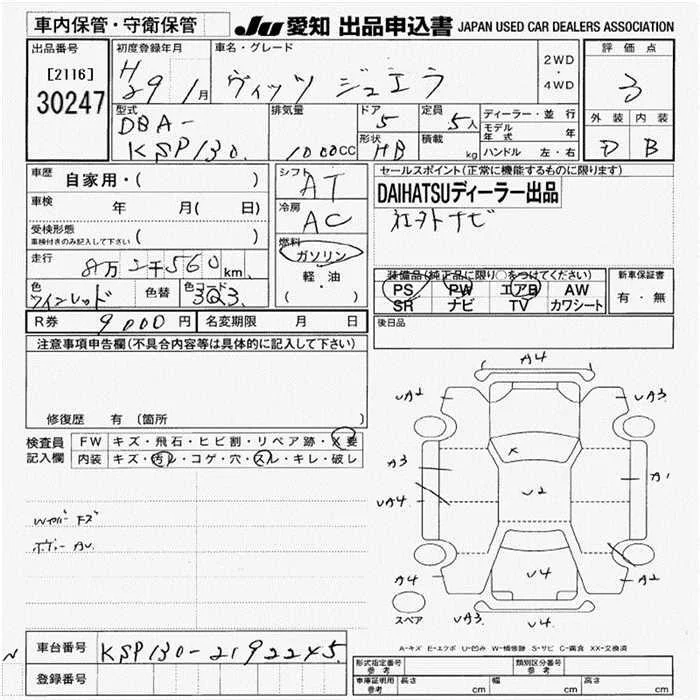 車内保管・守衛保管
JU 愛知 出品申込書 JAPAN USED CAR DEALERS ASSOCIATION
出品番号
[2116]
30247
初度登録年月
H29 1月
車名・グレード
ヴィッツ ジュエラ
2WD
・
4WD
評価点
3
外装 内装
D B
型式
DBA-
KSP130.
排気量
1000CC
ドア
5
定員
5人
形状
HB
積載
kg
ディーラー・並行
モデル年式 年
ハンドル 左・右
車歴
自家用・( )
車検
年 月( 日)
受検形態
車検付きのみ記入して下さい ( )
走行
8万2千560km
色
ワインレッド
色替
色コード
3Q3
シフト
AT
冷房
AC
燃料
ガソリン
軽・油
( ・ )
セールスポイント(正常に機能するものに限ります)
DAIHATSUディーラー出品
社外ナビ
装備品(純正品に限り○をつけてください)
PS PW エアB AW
SR ナビ TV カワシート
新車保証書
有・無
R券 9000円 名変期限 月 日
後日品
注意事項申告欄(不具合内容等は具体的に記入して下さい)
修復歴 有 (箇所 )
検査員
記入欄
FW キズ・飛石・ヒビ割・リペア跡・X要
内装 キズ・汚レ・コゲ・穴・スレ・キレ・破レ
Wカバー キズ
ボディー AU.
A4
UA2
UA3
A3
A1
X
U2
UA4
A4
U4
A2
UA3
U4
スペア
A-キズ E-エクボ U-凹み W-補修跡 S-サビ C-腐食 XX-交換済
N
車台番号 KSP130-2192245
登録番号
形式指定番号
参考
類別区分番号
参考
車庫証明用
参考
長さ cm 幅 cm 高さ cm